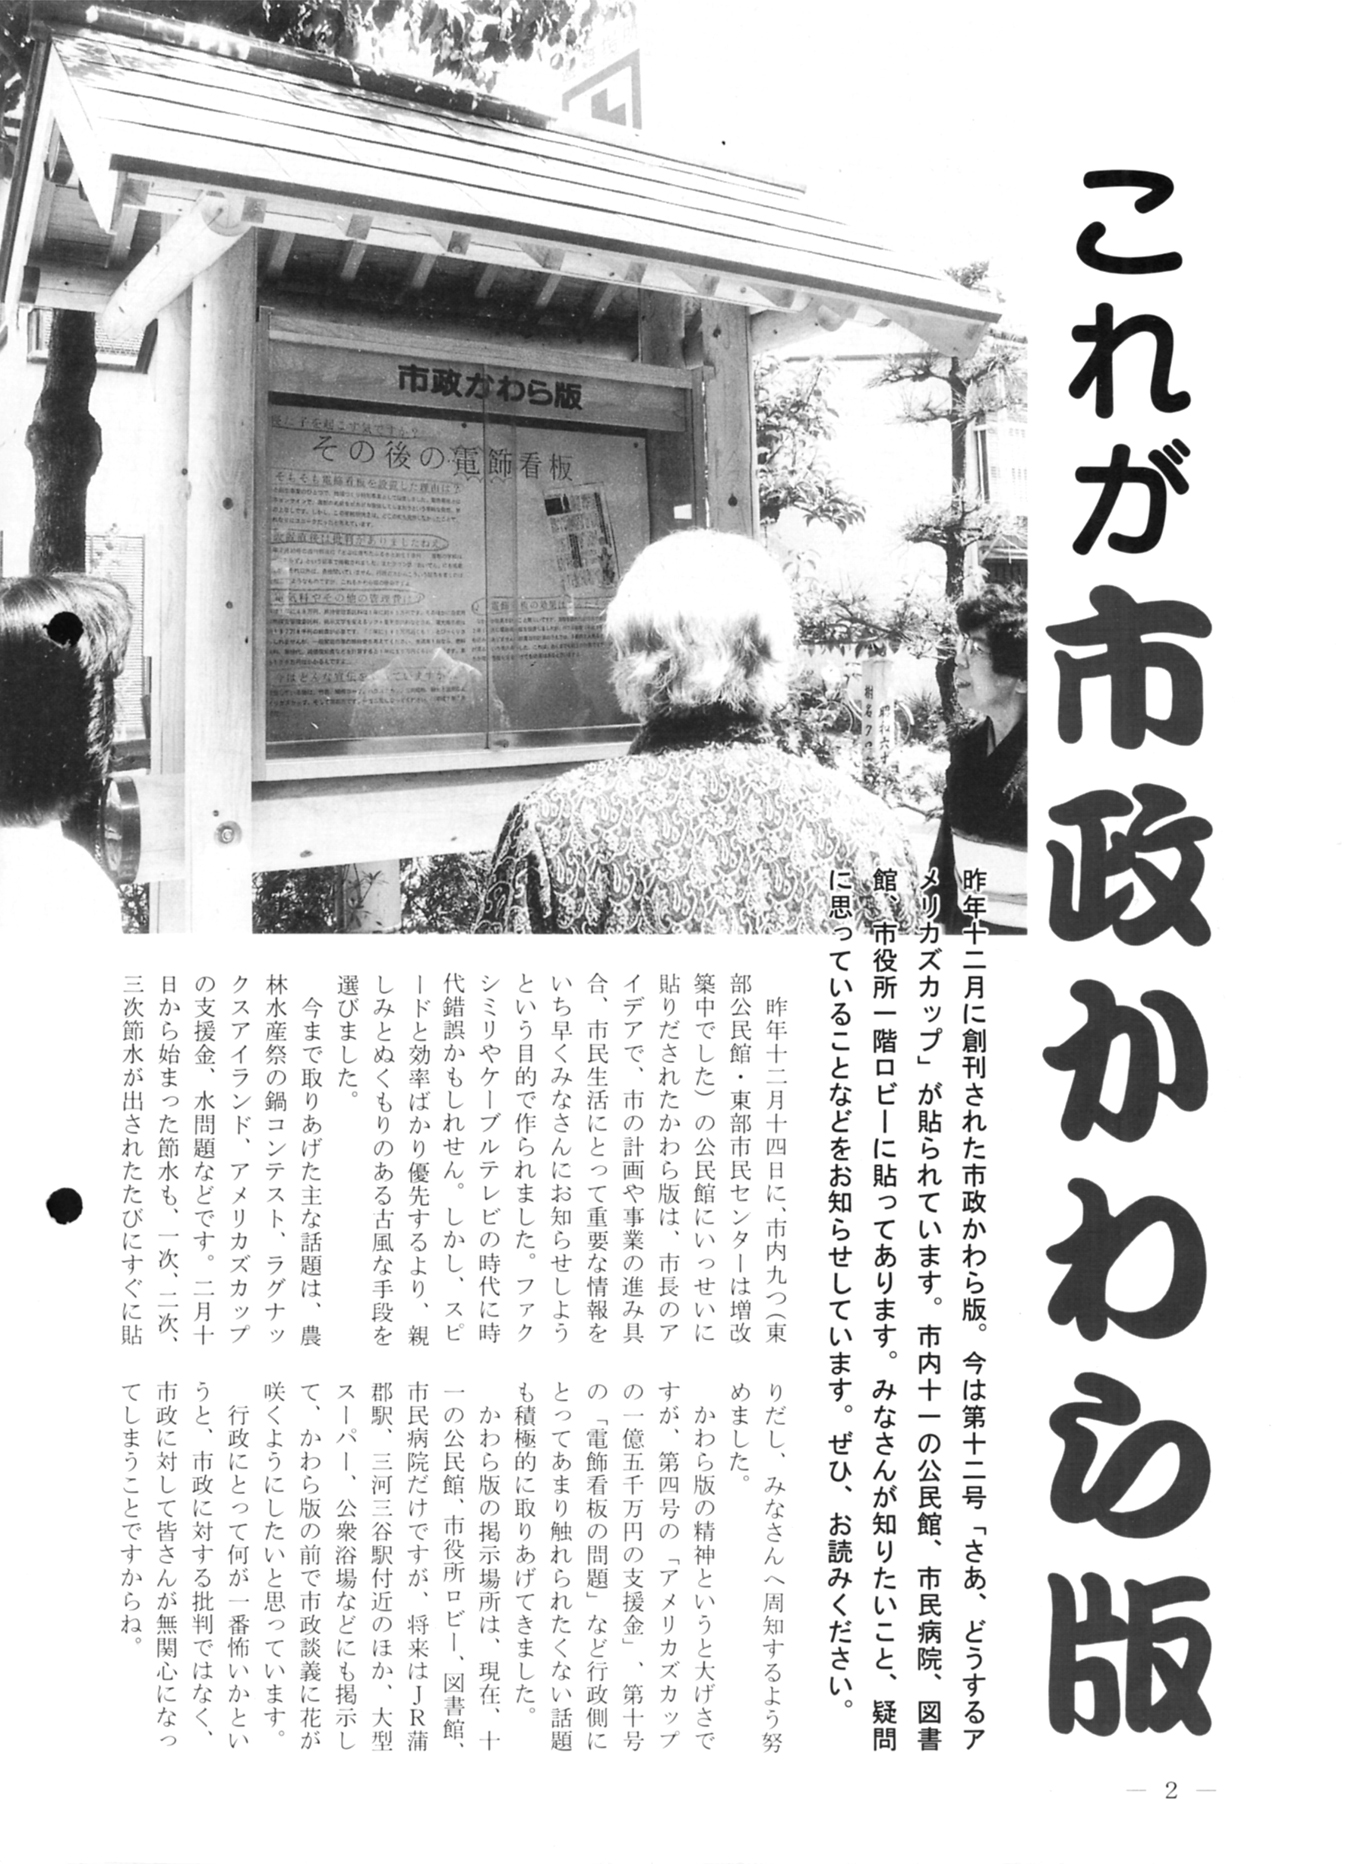 これが市政かわら版
昨年十二月に創刊された市政かわら版。今は第十二号「さあ、どうするア
メリカズカップ」が貼られています。市内十一の公民館、市民病院、図書
館、市役所一階ロビーに貼ってあります。みなさんが知りたいこと、疑問
に思っていることなどをお知らせしています。ぜひ、お読みください。
昨年十二月十四日に、市内九つ(東
部公民館・東部市民センターは増改
築中でした)の公民館にいっせいに
貼りだされたかわら版は、市長のア
イデアで、市の計画や事業の進み具
合、市民生活にとって重要な情報を
いち早くみなさんにお知らせしよう
という目的で作られました。ファク
シミリやケーブルテレビの時代に時
代錯誤かもしれせん。しかし、スピ
ードと効率ばかり優先するより、親
しみとぬくもりのある古風な手段を
選びました。
今まで取りあげた主な話題は、農
林水産祭の鍋コンテスト、ラグナッ
クスアイランド、アメリカズカップ
の支援金、水問題などです。二月十
日から始まった節水も、一次、二次、
三次節水が出されたたびにすぐに貼
りだし、みなさんへ周知するよう努
めました。
かわら版の精神というと大げさで
すが、第四号の「アメリカズカップ
の一億五千万円の支援金」、第十号
の「電飾看板の問題」など行政側に
とってあまり触れられたくない話題
も積極的に取りあげてきました。
かわら版の掲示場所は、現在、十
一の公民館、市役所ロビー、図書館、
市民病院だけですが、将来はJR蒲
郡駅、三河三谷駅付近のほか、大型
スーパー、公衆浴場などにも掲示し
て、かわら版の前で市政談義に花が
咲くようにしたいと思っています。
行政にとって何が一番怖いかとい
うと、市政に対する批判ではなく、
市政に対して皆さんが無関心になっ
てしまうことですからね。
市政かわら版
子を起こす気ですか?
その後の電飾看板
そもそも電飾看板を設置した理由は?
設置直後は批判がありましたねえ
気料やその他の管理費は?
今はどんな宣伝を
ていますか
昭和六十
— 2 —